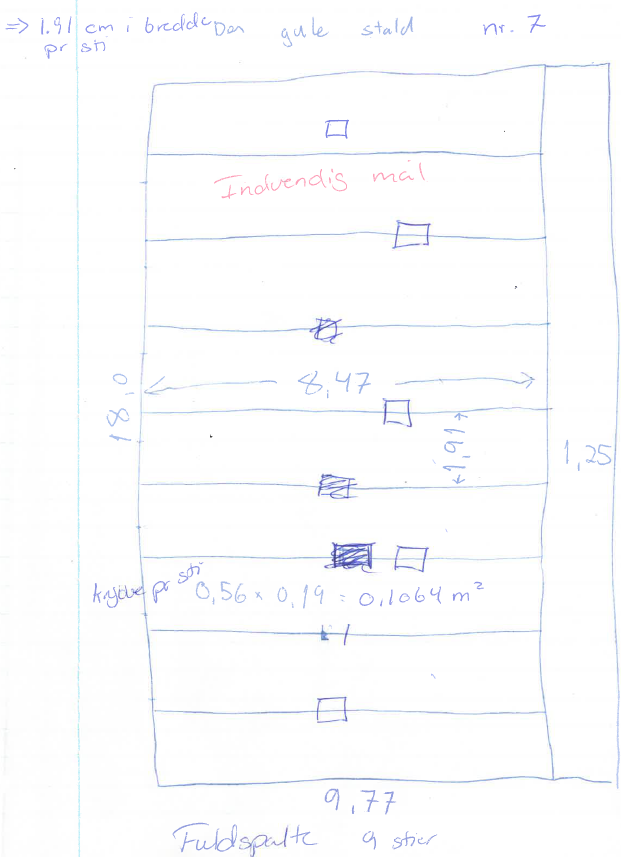 ⇒ 1.91 cm i bredde
pr sti
Den gule stald nr. 7
Indvendig mål
8,47
18,0
1,91
1,25
krybbe pr sti 0,56 x 0,19 = 0,1064 m²
9,77
Fuldspalte 9 stier